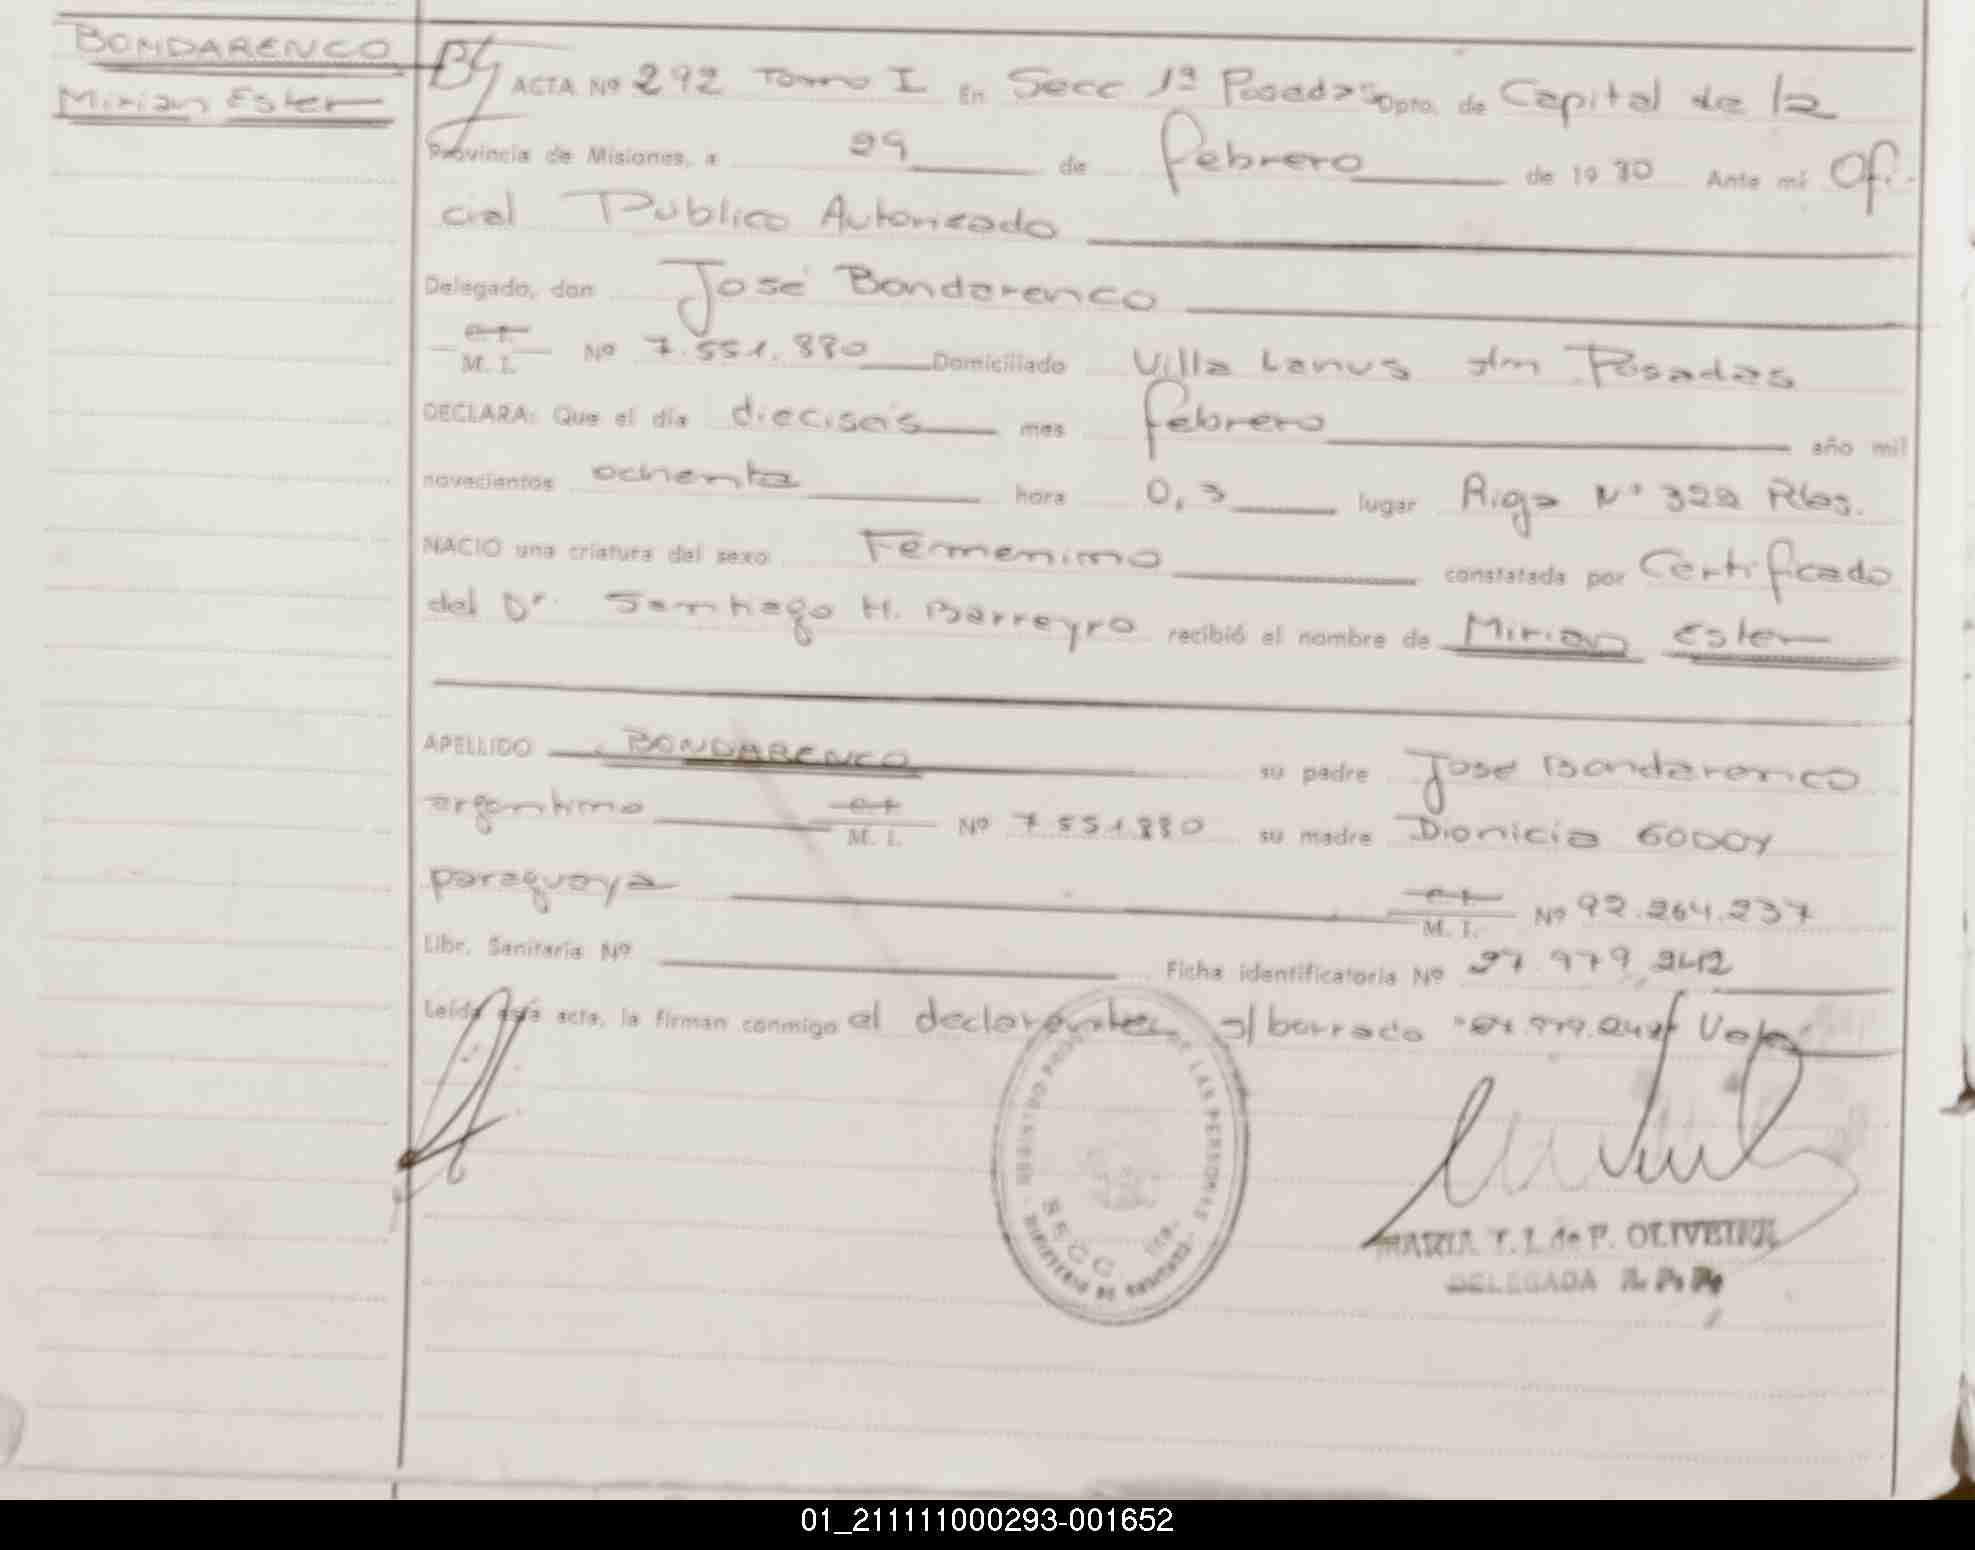 BONDARENCO
Mirian Ester
ACTA Nº 292 Tomo I En Secc 1ª Posadas Dpto. de Capital de la
Provincia de Misiones, a 29 de febrero de 1980 Ante mi Ofi-
cial Publico Autorizado
Delegado, don José Bondarenco
C. I.
M. I. Nº 7.551.880 Domiciliado Villa Lanus Posadas
DECLARA: Que el día dieciseis mes febrero año mil
novecientos ochenta hora 0,3 lugar Riga Nº 322 Pdas.
NACIO una criatura del sexo Femenino constatada por Certificado
del Dr. Santiago H. Barreyro recibió el nombre de Mirian Ester
APELLIDO BONDARENCO su padre José Bondarenco
argentino C. I.
M. I. Nº 7.551.880 su madre Dionicia GODOY
paraguaya C. I.
M. I. Nº 92.264.237
Libr. Sanitaria Nº Ficha identificatoria Nº 27.979.242
Leída esta acta, la firman conmigo el declarante s/borrado Vale
REGISTRO PROV. DE LAS PERSONAS
SECC. 1ra.
MINISTERIO DE GOBIERNO
MARIA T. L. de P. OLIVEIRA
DELEGADA R. P. P.
01_211111000293-001652